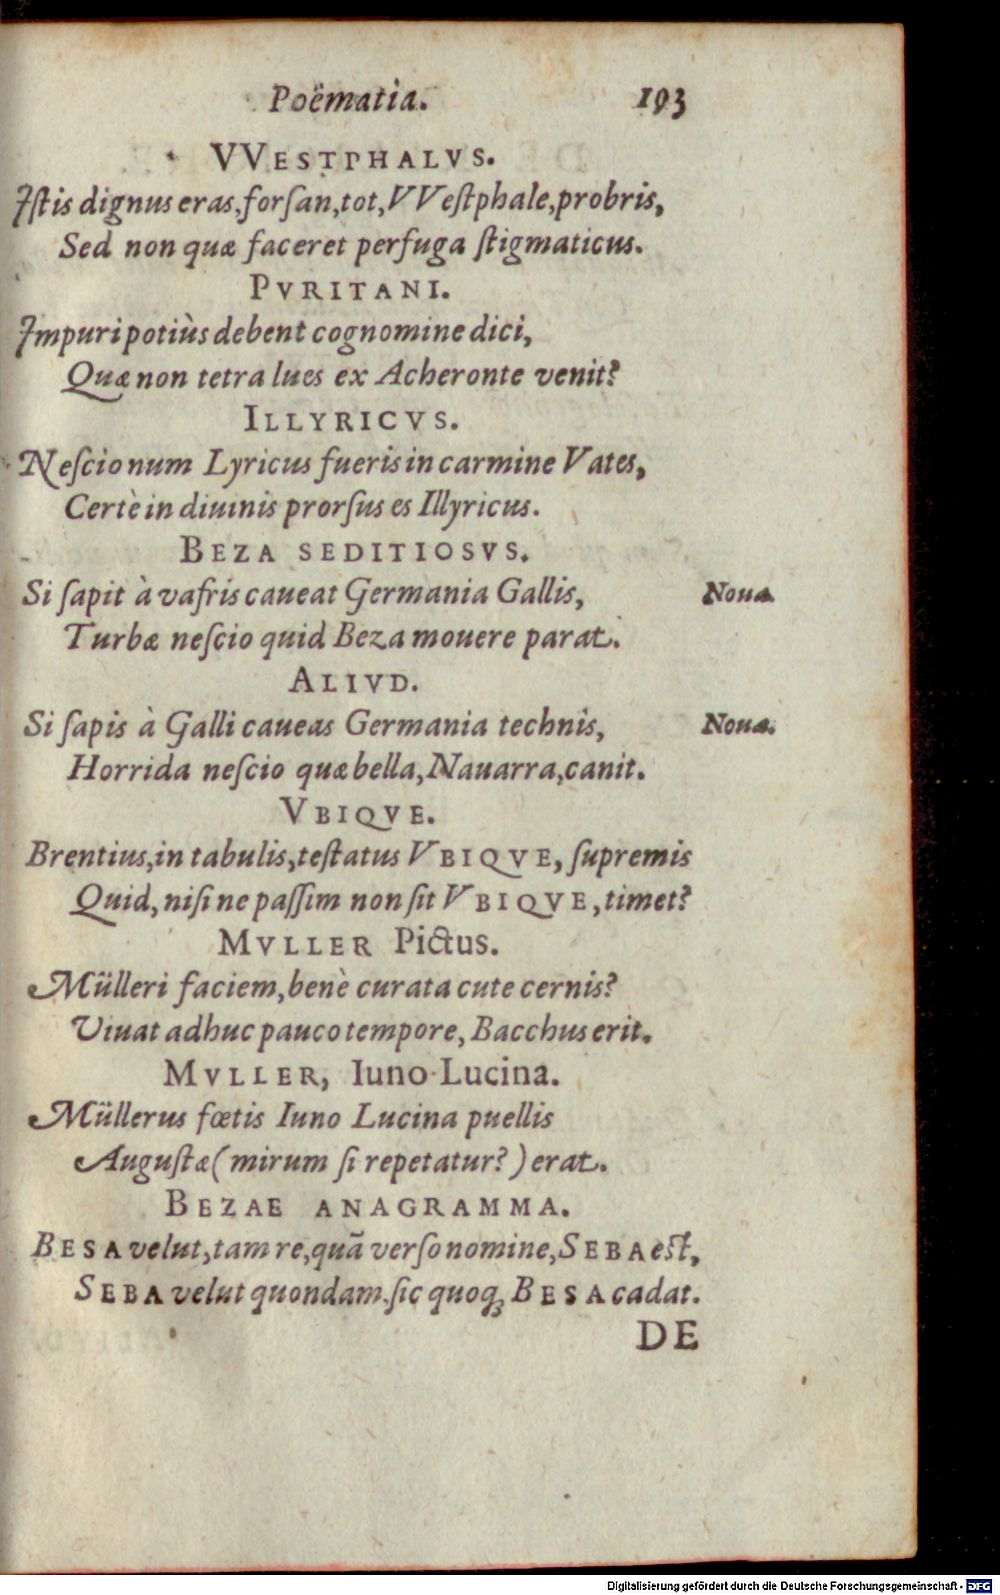 Poëmatia. 193
VVESTPHALVS.
Iſtis dignus eras, forſan, tot, VVeſtphale, probris,
Sed non quæ faceret perfuga ſtigmaticus.
PVRITANI.
Impuri potiùs debent cognomine dici,
Quæ non tetra lues ex Acheronte venit?
ILLYRICVS.
Neſcio num Lyricus fueris in carmine Vates,
Certè in diuinis prorſus es Illyricus.
BEZA SEDITIOSVS.
Si ſapit à vafris caueat Germania Gallis, Noua.
Turbæ neſcio quid Beza mouere parat.
ALIVD.
Si ſapis à Galli caueas Germania technis, Noua.
Horrida neſcio quæ bella, Nauarra, canit.
VBIQVE.
Brentius, in tabulis, teſtatus VBIQVE, ſupremis
Quid, niſi ne paſſim non ſit VBIQVE, timet?
MVLLER Pictus.
Mülleri faciem, benè curata cute cernis?
Viuat adhuc pauco tempore, Bacchus erit.
MVLLER, Iuno Lucina.
Müllerus fœtis Iuno Lucina puellis
Auguſtæ (mirum ſi repetatur?) erat.
BEZAE ANAGRAMMA.
BESA velut, tam re, quã verſo nomine, SEBA eſt,
SEBA velut quondam, ſic quoq; BESA cadat.
DE
Digitalisierung gefördert durch die Deutsche Forschungsgemeinschaft - DFG